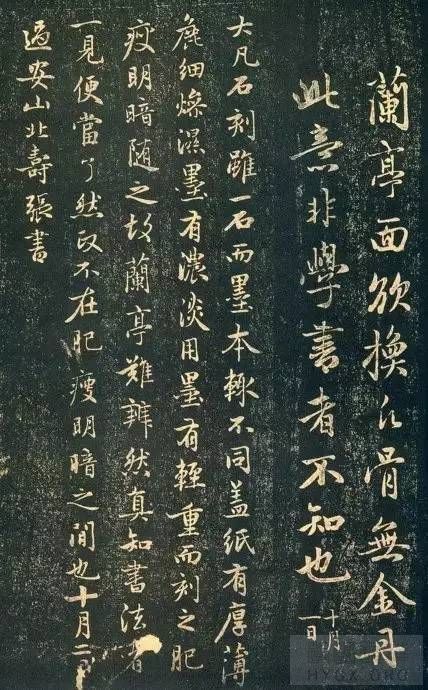 蘭亭面欲換凡骨無金丹
此意非學書者不知也 十月
一日
大凡石刻雖一石而墨本輒不同盖紙有厚薄
麁細燥濕墨有濃淡用墨有輕重而刻之肥
瘦明暗随之故蘭亭難辨然真知書法者
一見便當了然政不在肥瘦明暗之間也十月二日
過安山北壽張書